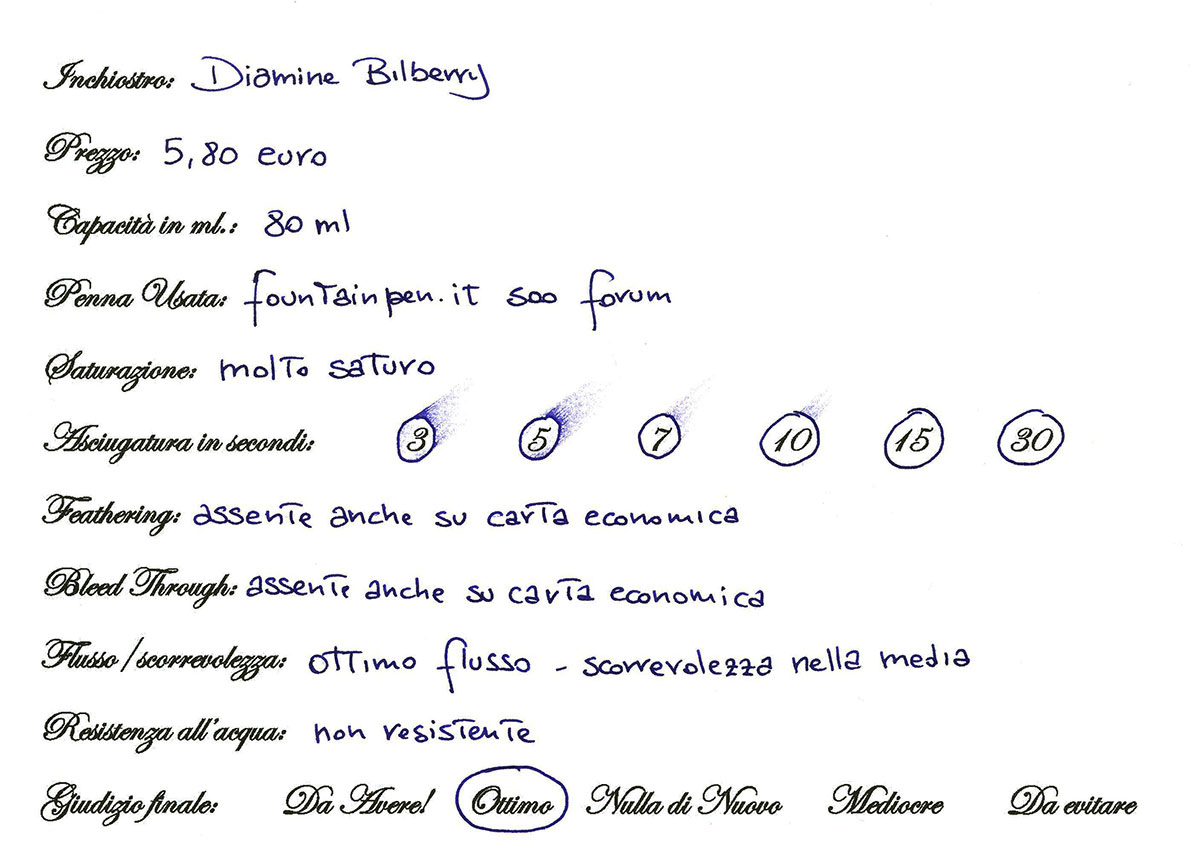 Inchiostro: Diamine Bilberry
Prezzo: 5,80 euro
Capacità in ml.: 80 ml
Penna Usata: fountainpen.it 500 forum
Saturazione: molto saturo
Asciugatura in secondi: 3 5 7 10 15 30
Feathering: assente anche su carta economica
Bleed Through: assente anche su carta economica
Flusso/scorrevolezza: ottimo flusso - scorrevolezza nella media
Resistenza all'acqua: non resistente
Giudizio finale: Da Avere! Ottimo Nulla di Nuovo Mediocre Da evitare